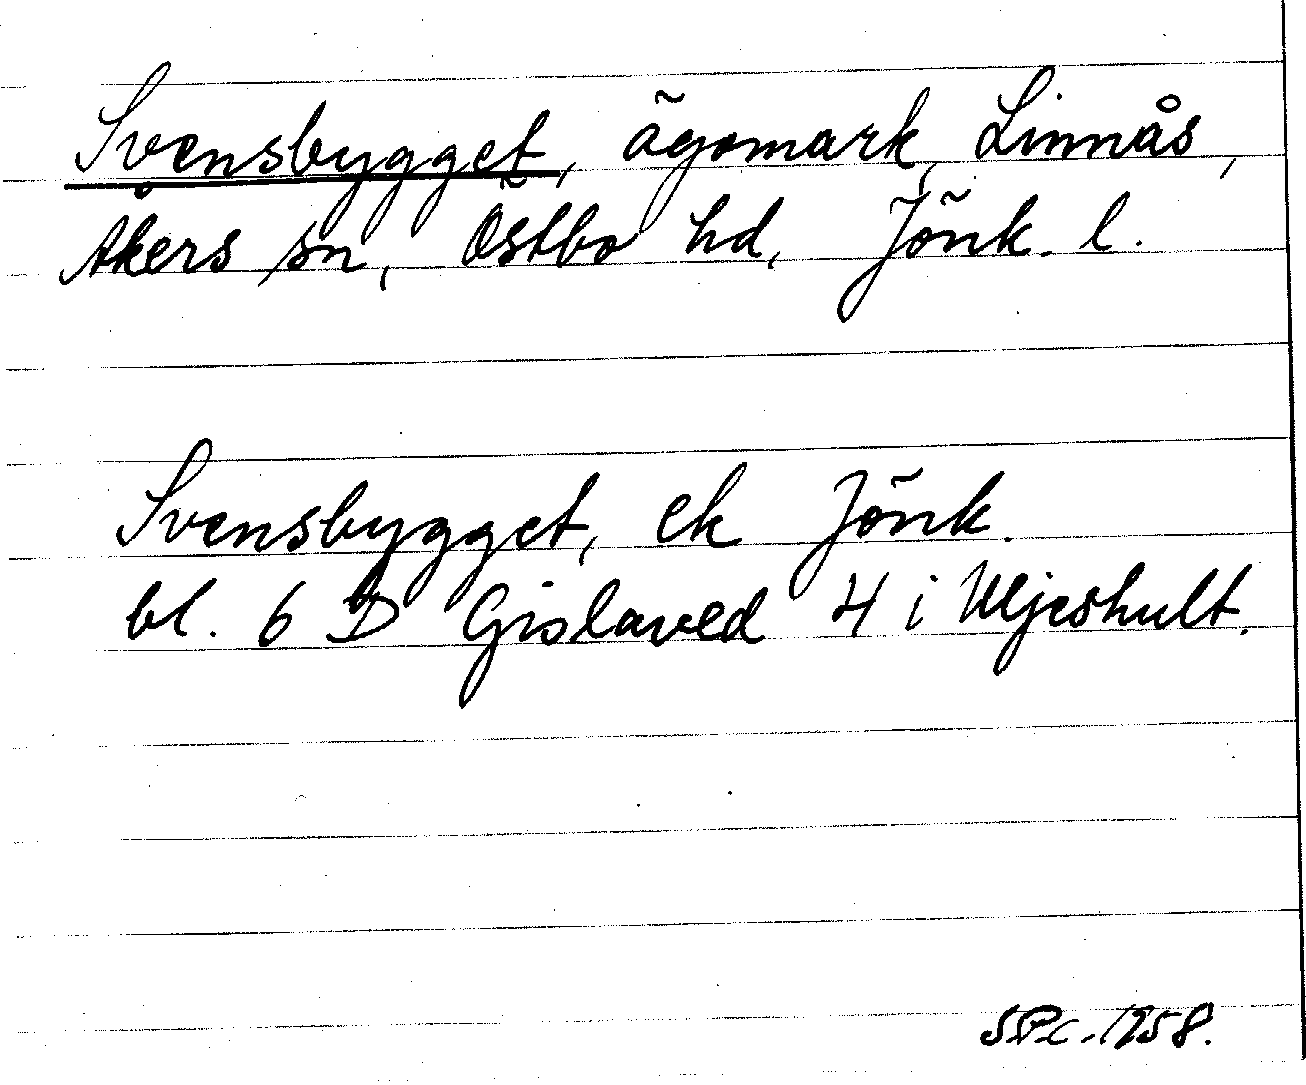 Svensbygget, ägomark, Linnås,
Åkers sn, Östbo hd, Jönk. l.
Svensbygget, ek Jönk.
bl. 6 D Gislaved 4 i Uljeshult.
1958.